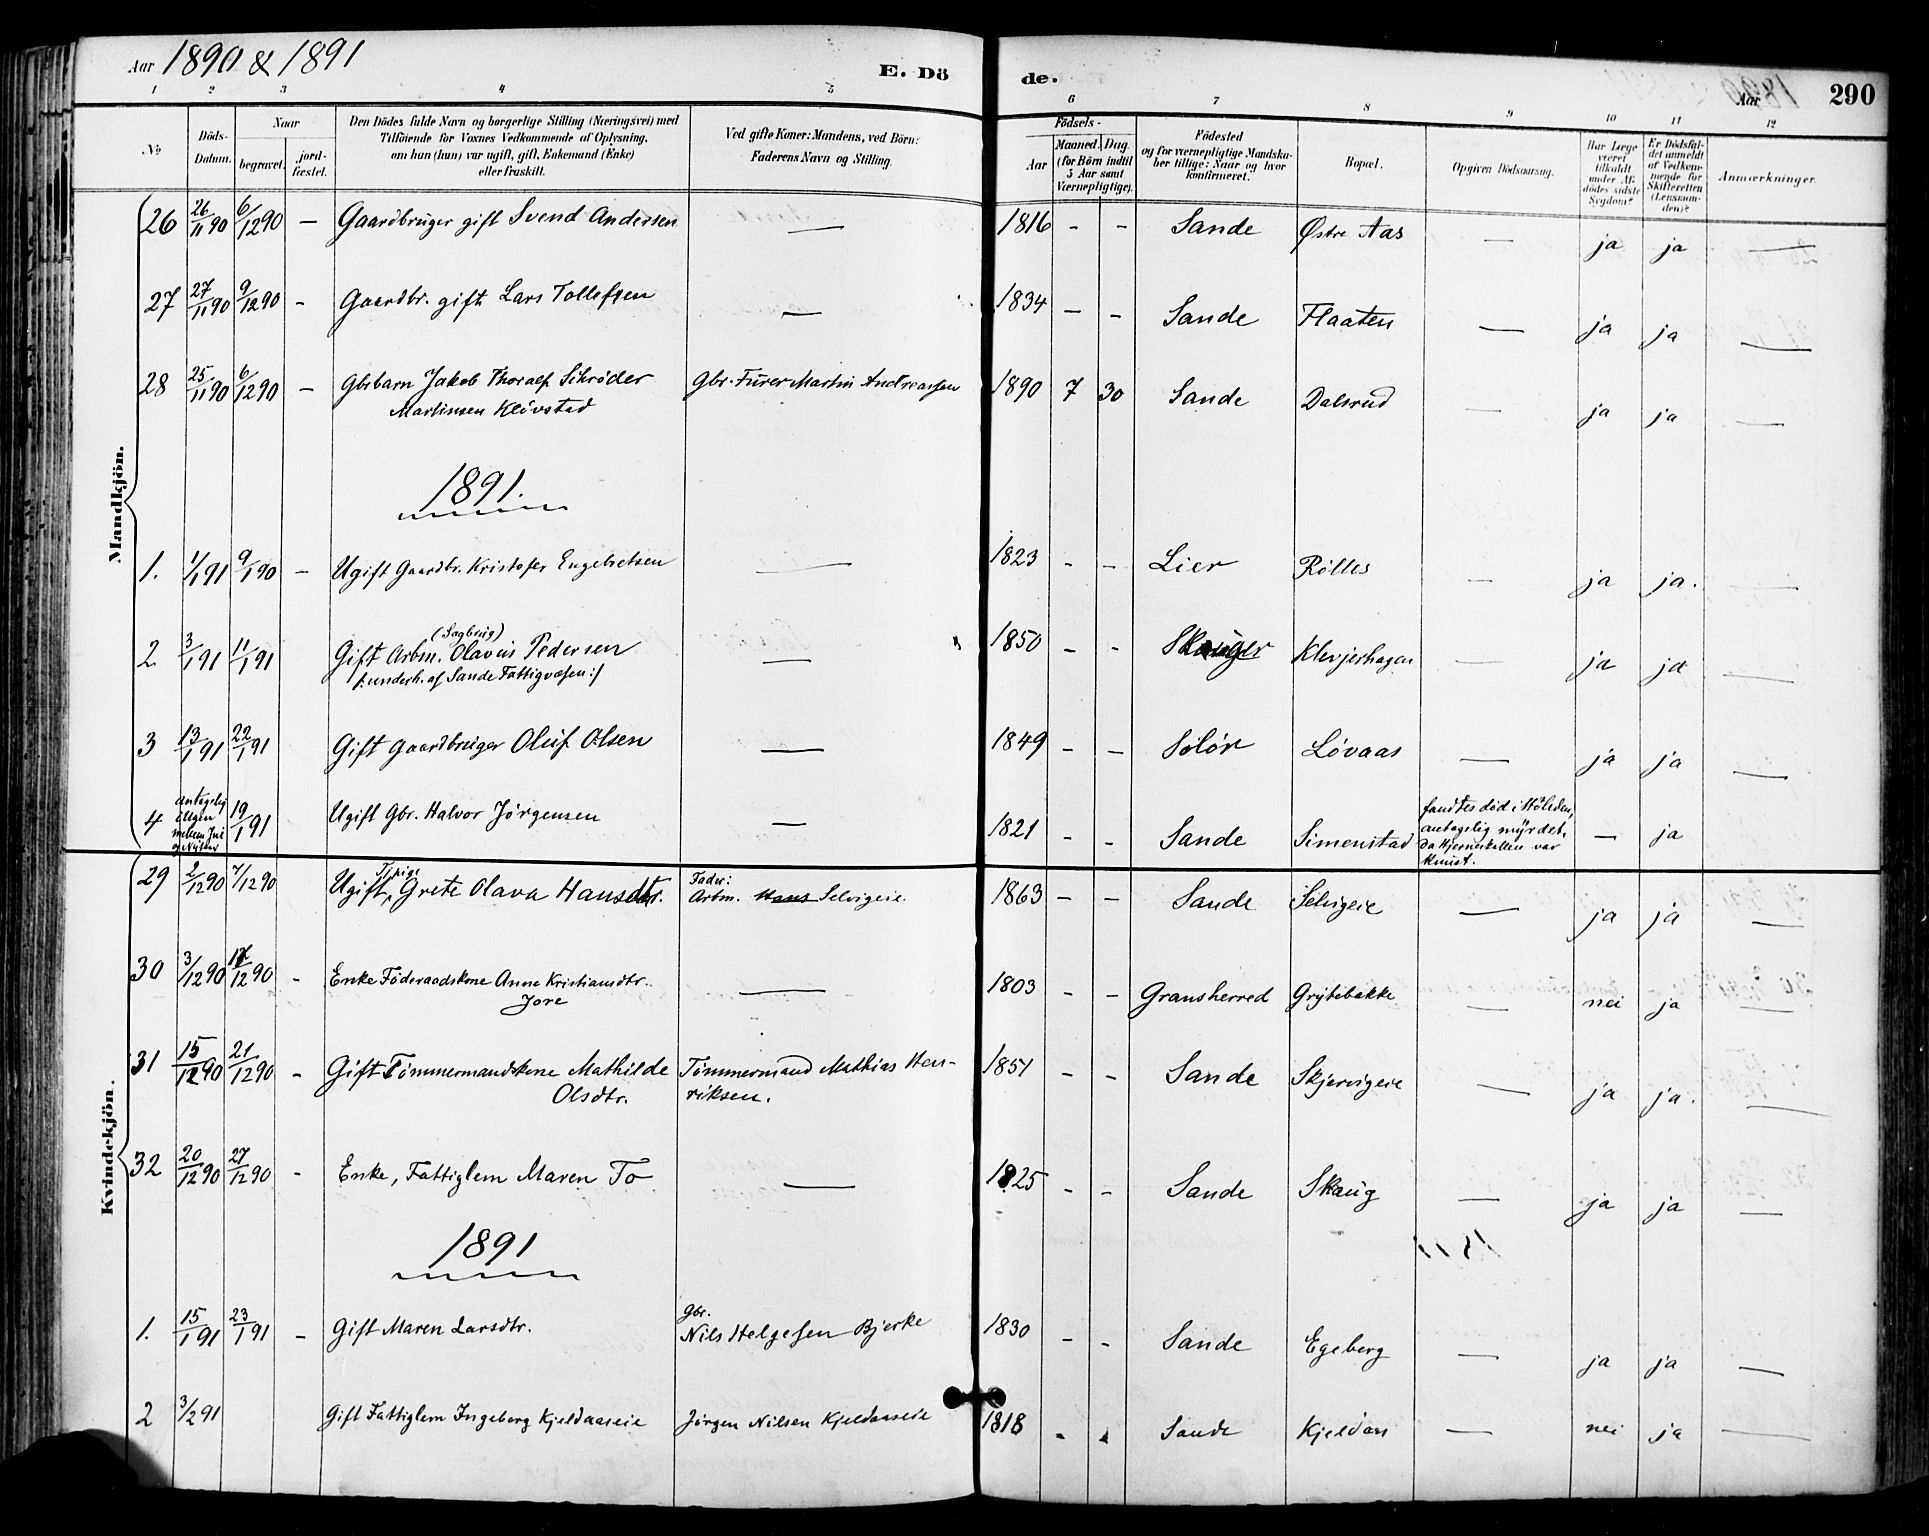 Aar 1890 & 1891 E. Dö de. Aar 290
1 2 3 4 5 6 7 8 9 10 11 12
№
Döds-
Datum.
Naar
begravet.
jord-
fæstet.
Den Dödes fulde Navn og borgerlige Stilling (Næringsvei) med
Tilföiende for Voxnes Vedkommende af Oplysning,
om han (hun) var ugift, gift, Enkemand (Enke)
eller fraskilt.
Ved gifte Koner: Mandens, ved Börn:
Faderens Navn og Stilling.
Födsels-
Aar
Maaned. Dag.
(for Börn indtil
5 Aar samt
Værnepligtige).
Födested
og for værnepligtige Mandska-
ber tillige: Naar og hvor
konfirmeret.
Bopæl.
Opgiven Dödsaarsag.
Har Læge
været
tilkaldt
under Af-
dödes sidste
Sygdom?
Er Dödsfal-
det anmeldt
af Vedkom-
mende for
Skifteretten
(Lensman-
den)?
Anmærkninger.
Mandkjön.
26 26/11 90 6/12 90 — Gaardbruger gift Svend Andersen — 1816 - - Sande Østre Aas — ja ja —
27 27/11 90 9/12 90 - Gaardbr. gift Lars Tollefsen — 1834 - - Sande Flaaten — ja ja —
28 25/11 90 6/12 90 — Gbrbarn Jakob Thoralf Schrøder Gbr. Furer Martin Andreassen 1890 7 30 Sande Dalsrud — ja ja —
Martinsen Kløvstad
1891.
1. 1/1 91 9/1 90 — Ugift Gaardbr. Kristofer Engebretsen — 1823 - - Lier Rølles — ja ja. —
(Sagbrug)
2 3/1 91 11/1 91 Gift Arbm. Olavus Pedersen — 1850 - - Skouger Klevjerhagen — ja ja —
/: underh. af Sande Fattigvæsen :/
3 13/1 91 22/1 91 Gift Gaardbruger Oluf Olsen — 1849 - - Solør Løvaas — ja ja —
4 antagelig 19/1 91 Ugift Gbr. Halvor Jørgensen — 1821 - - Sande Simenstad fandtes død i Høleden, — ja
mellem Jul
antagelig myrdet,
da Hjerneskallen var
knust.
Kvindekjön.
29 2/12 90 7/12 90 Ugift, Pige Grete Olava Hansdtr. Fader: 1863 - - Sande Selvigeie — ja ja —
Arbm. Hans Selvigeie
30 3/12 90 12 90 - Enke Føderaadskone Anne Kristiansdtr. — 1803 - - Gransherred Grytebakke — nei ja —
Jore
31 15/12 90 21/12 90 - Gift Tømmermandskone Mathilde Tømmermand Mathias Hen- 1851 - - Sande Skjervigeie — ja ja. —
Olsdtr. riksen.
32 20/12 90 27/12 90 - Enke, Fattiglem Maren To — 1825 - - Sande Skaug — ja ja —
1891
1. 15/1 91 23/1 91 - Gift Maren Larsdtr. Gbr. 1830 - - Sande Egeberg — ja ja —
Nils Helgesen Bjerke
2 3/2 91 Gift Fattiglem Ingeborg Kjeldaaseie Jørgen Nilsen Kjeldaaseie 1818 - - Sande Kjeldaas — nei ja —